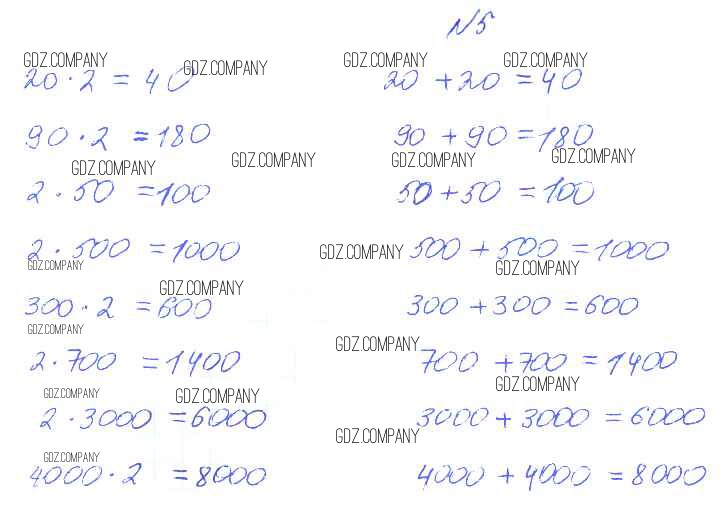 N5
GDZ.COMPANY GDZ.COMPANY GDZ.COMPANY GDZ.COMPANY
20 · 2 = 40 20 + 20 = 40
90 · 2 = 180 90 + 90 = 180
GDZ.COMPANY GDZ.COMPANY GDZ.COMPANY GDZ.COMPANY
2 · 50 = 100 50 + 50 = 100
2 · 500 = 1000 GDZ.COMPANY 500 + 500 = 1000
GDZ.COMPANY GDZ.COMPANY
GDZ.COMPANY
300 · 2 = 600 300 + 300 = 600
GDZ.COMPANY GDZ.COMPANY
2 · 700 = 1400 700 + 700 = 1400
GDZ.COMPANY GDZ.COMPANY GDZ.COMPANY
2 · 3000 = 6000 3000 + 3000 = 6000
GDZ.COMPANY
GDZ.COMPANY
4000 · 2 = 8000 4000 + 4000 = 8000